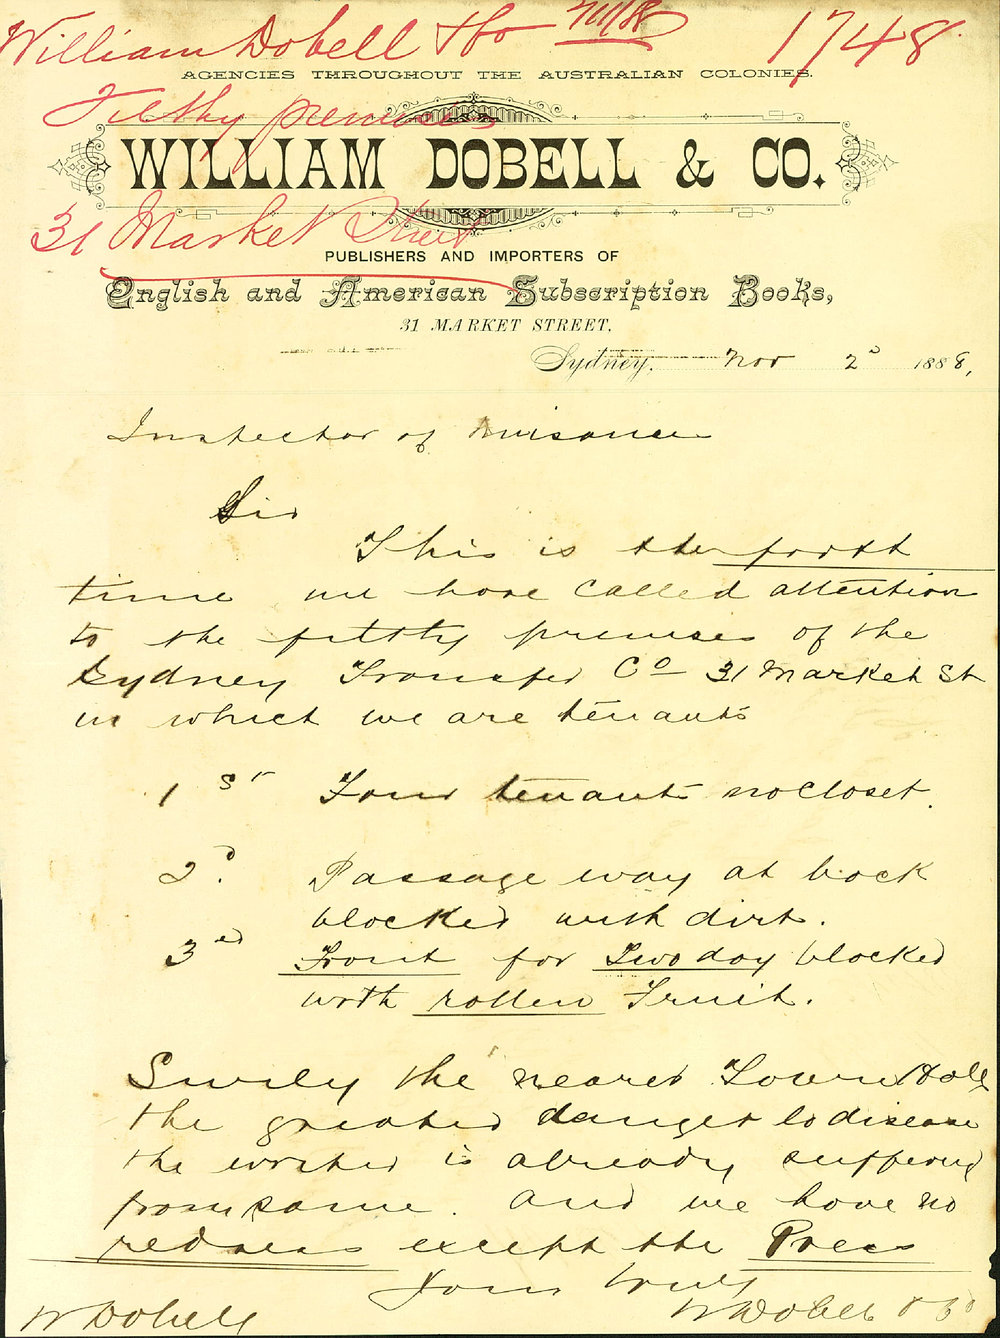 William Dobell & Co 7/11/88 1748
AGENCIES THROUGHOUT THE AUSTRALIAN COLONIES.
Filthy premises
WILLIAM DOBELL & CO.
31 Market Street
PUBLISHERS AND IMPORTERS OF
English and American Subscription Books,
31 MARKET STREET,
Sydney, Nov 2d 1888,
Inspector of Nuisance
Sir
This is the forth
time we have called attention
to the filthy premises of the
Sydney Transfer Co 31 Market St
in which we are tenants
1st Four tenants no closet.
2d. Passage way at back
blocked with dirt.
3ed Front for Two day blocked
with rotten Fruit.
Surely the nearer Town Hall
the greater danger to disease
the is already suffering
from same. And we have no
redress except the Press
Yours truly
W Dobell W Dobell & Co